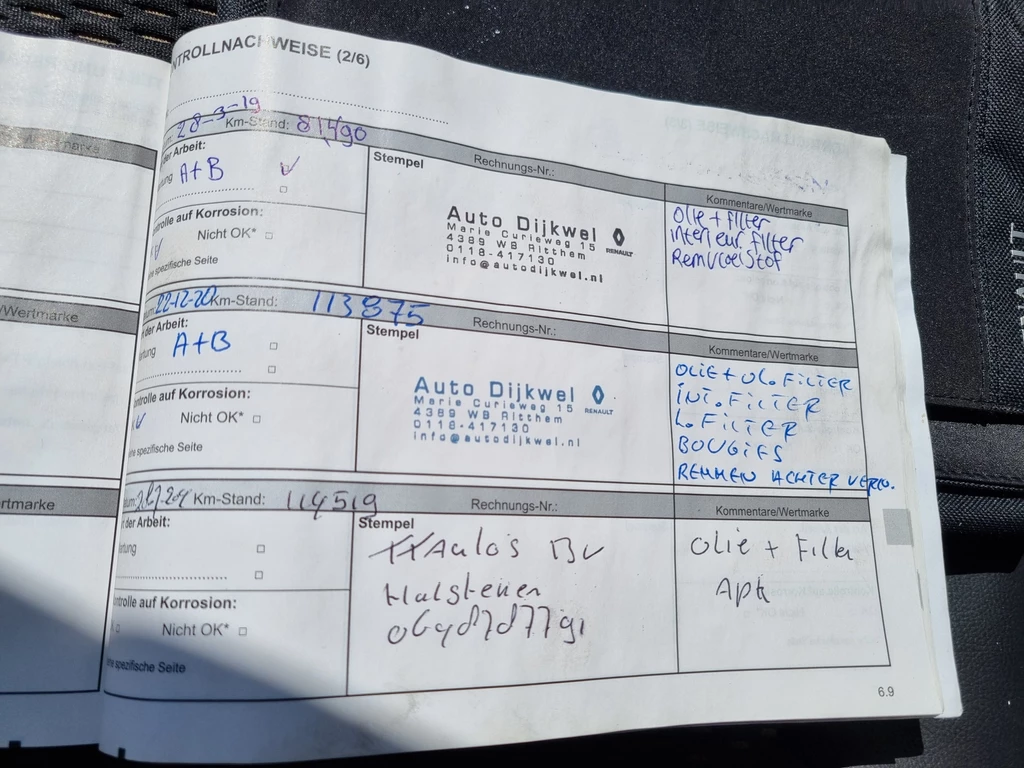 NTROLLNACHWEISE (2/6)
28-3-19
Km-Stand: 81490
der Arbeit:
A+B
Stempel
Rechnungs-Nr.:
Kommentare/Wertmarke
Auto Dijkwel
Marie Curieweg 15
4389 WB Ritthem
0118-417130
info@autodijkwel.nl
RENAULT
Olie + filter
interieur filter
Remvloeistof
ntrolle auf Korrosion:
Nicht OK*
ne spezifische Seite
/Wertmarke
22-12-20 Km-Stand: 113875
der Arbeit:
rtung A+B
Stempel
Rechnungs-Nr.:
Kommentare/Wertmarke
Auto Dijkwel
Marie Curieweg 15
4389 WB Ritthem
0118-417130
info@autodijkwel.nl
RENAULT
OLIE + OL. FILTER
INT. FILTER
L. FILTER
BOUGIES
REMMEN ACHTER VERN.
ntrolle auf Korrosion:
Nicht OK*
ne spezifische Seite
ertmarke
Km-Stand: 114519
t der Arbeit:
rtung
Stempel
Rechnungs-Nr.:
Kommentare/Wertmarke
Autos BV
Halsteren
Olie + Filter
Apk
ntrolle auf Korrosion:
Nicht OK*
ne spezifische Seite
6.9